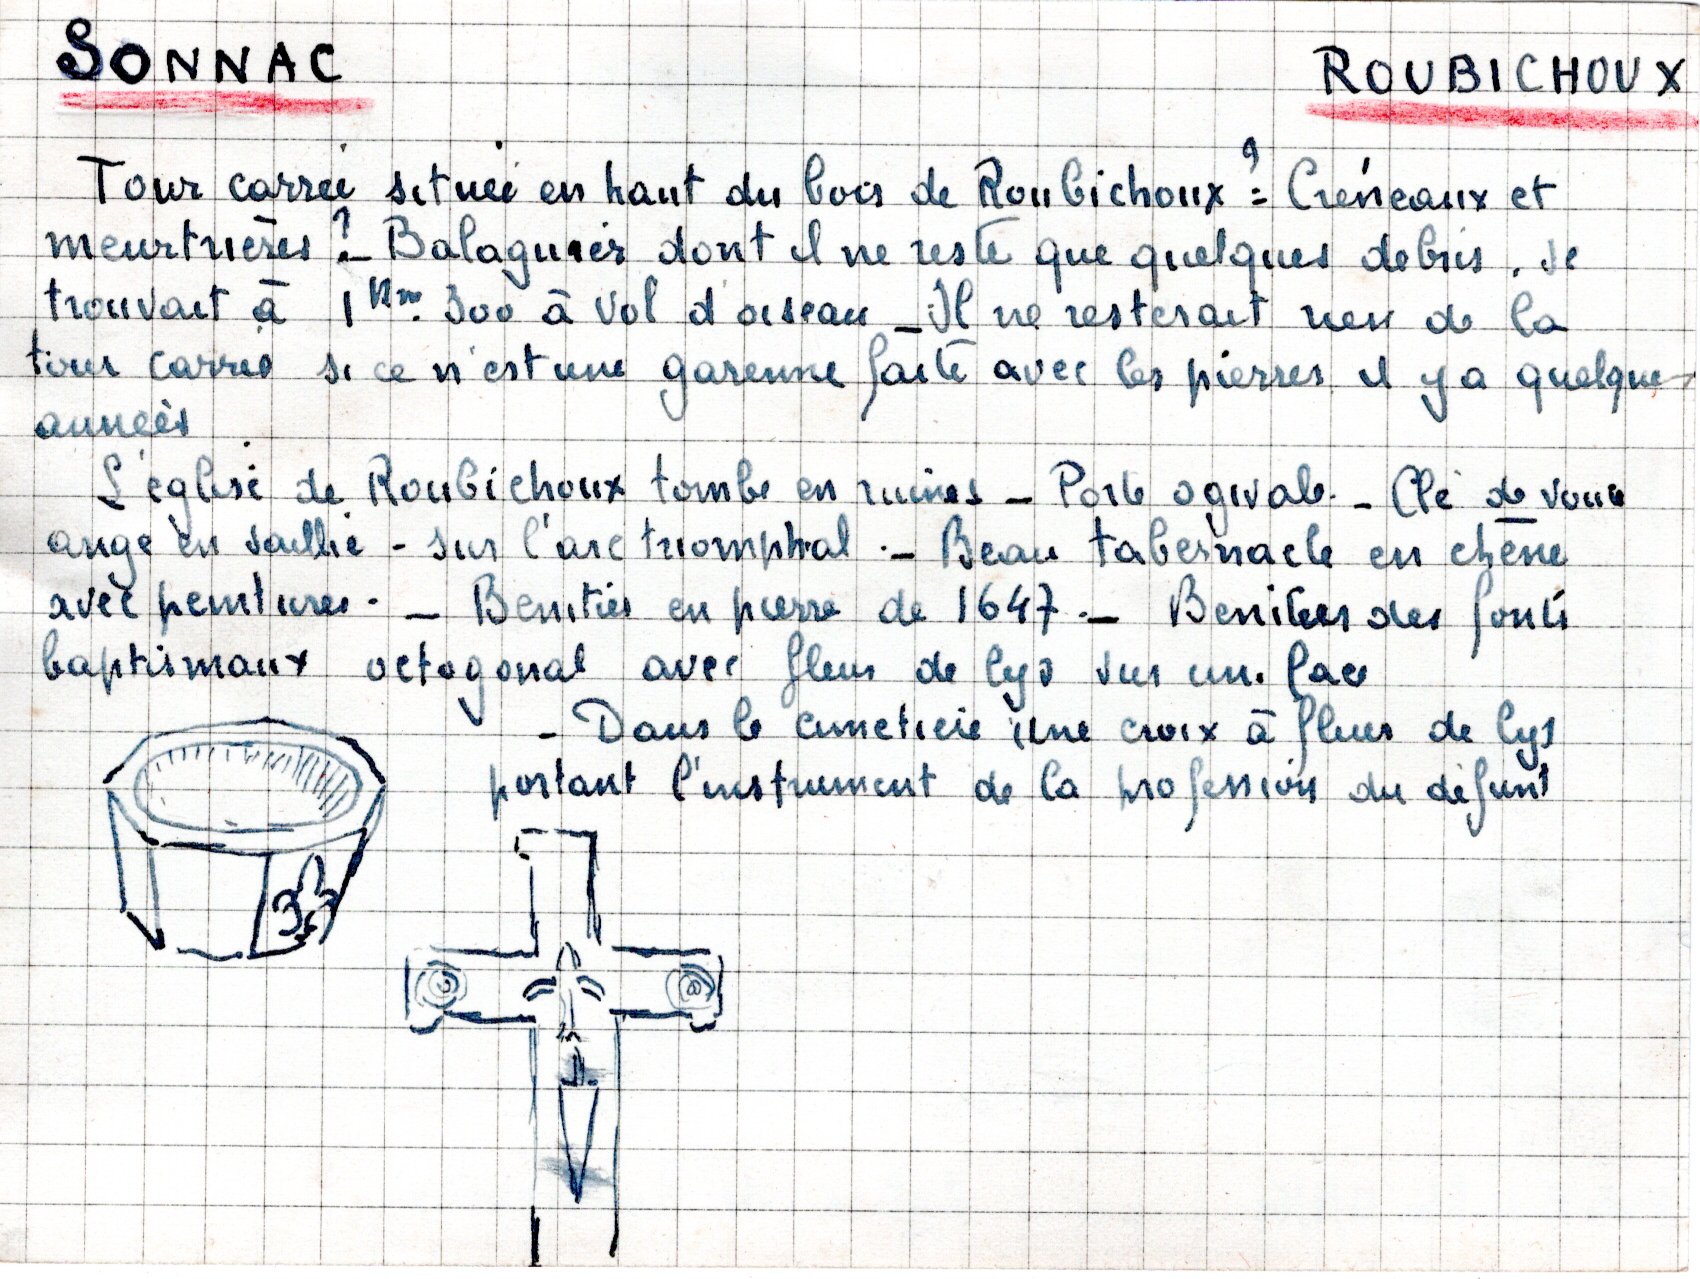 SONNAC
ROUBICHOUX
Tour carrée située en haut du bois de Roubichoux ? = Créneaux et
meurtrières ? – Balaguier dont il ne reste que quelques debris, se
trouvait à 1 Km. 300 à vol d'oiseau – Il ne resterait rien de la
tour carrée si ce n'est une garenne faite avec les pierres il y a quelques
années
L'église de Roubichoux tombe en ruines – Porte ogivale. – Clé de voute
ange en saillie - sur l'arc triomphal. – Beau tabernacle en chêne
avec peintures. – Benitier en pierre de 1647. – Benitier des fonts
baptismaux octogonal avec fleur de lys sur une face
- Dans le cimetiere une croix à fleurs de lys
portant l'instrument de la profession du défunt